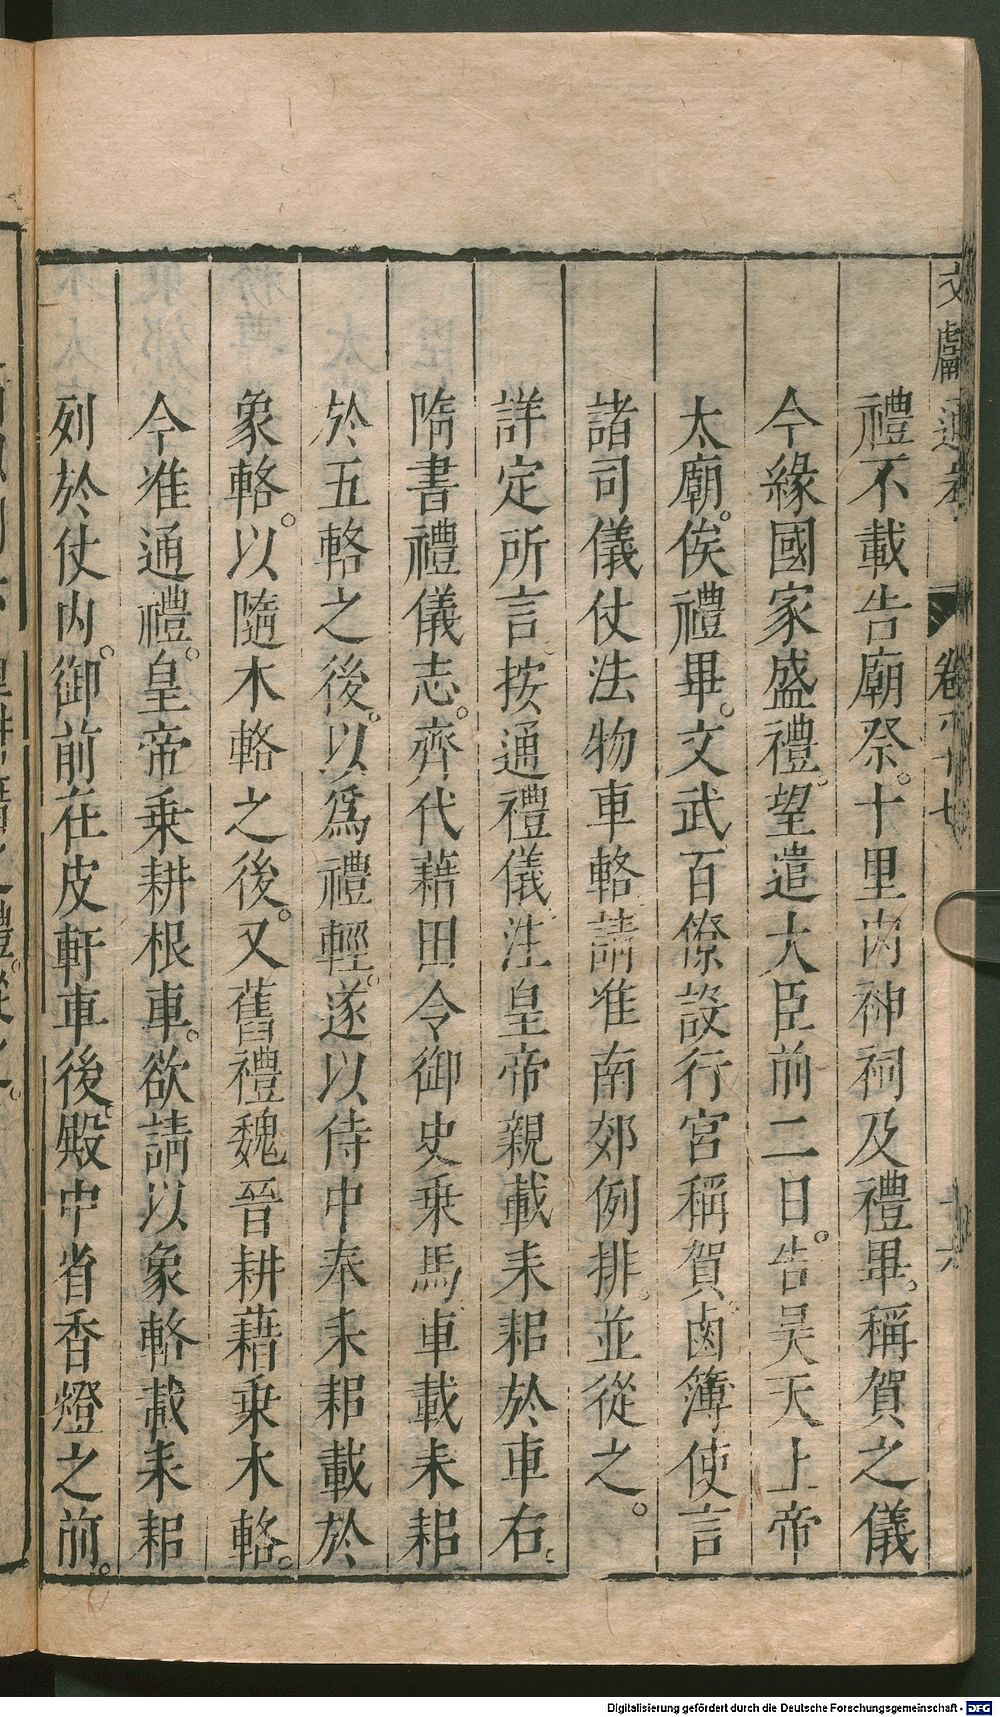 文獻通考 卷八十七
禮不載告廟祭。十里內神祠及禮畢。稱賀之儀
今緣國家盛禮。望遣大臣前二日。告昊天上帝
太廟。俟禮畢。文武百僚設行宮稱賀。鹵簿使言
諸司儀仗法物車輅請准南郊例排。並從之。
詳定所言按通禮儀注皇帝親載耒耜於車右。
隋書禮儀志。齊代藉田令御史乗馬車載耒耜
於五輅之後。以爲禮輕。遂以侍中奉耒耜載於
象輅。以隨木輅之後。又舊禮魏晉耕藉乗木輅。
今准通禮。皇帝乗耕根車。欲請以象輅載耒耜
列於仗內。御前在皮軒車後。殿中省香燈之前。
Digitalisierung gefördert durch die Deutsche Forschungsgemeinschaft - DFG